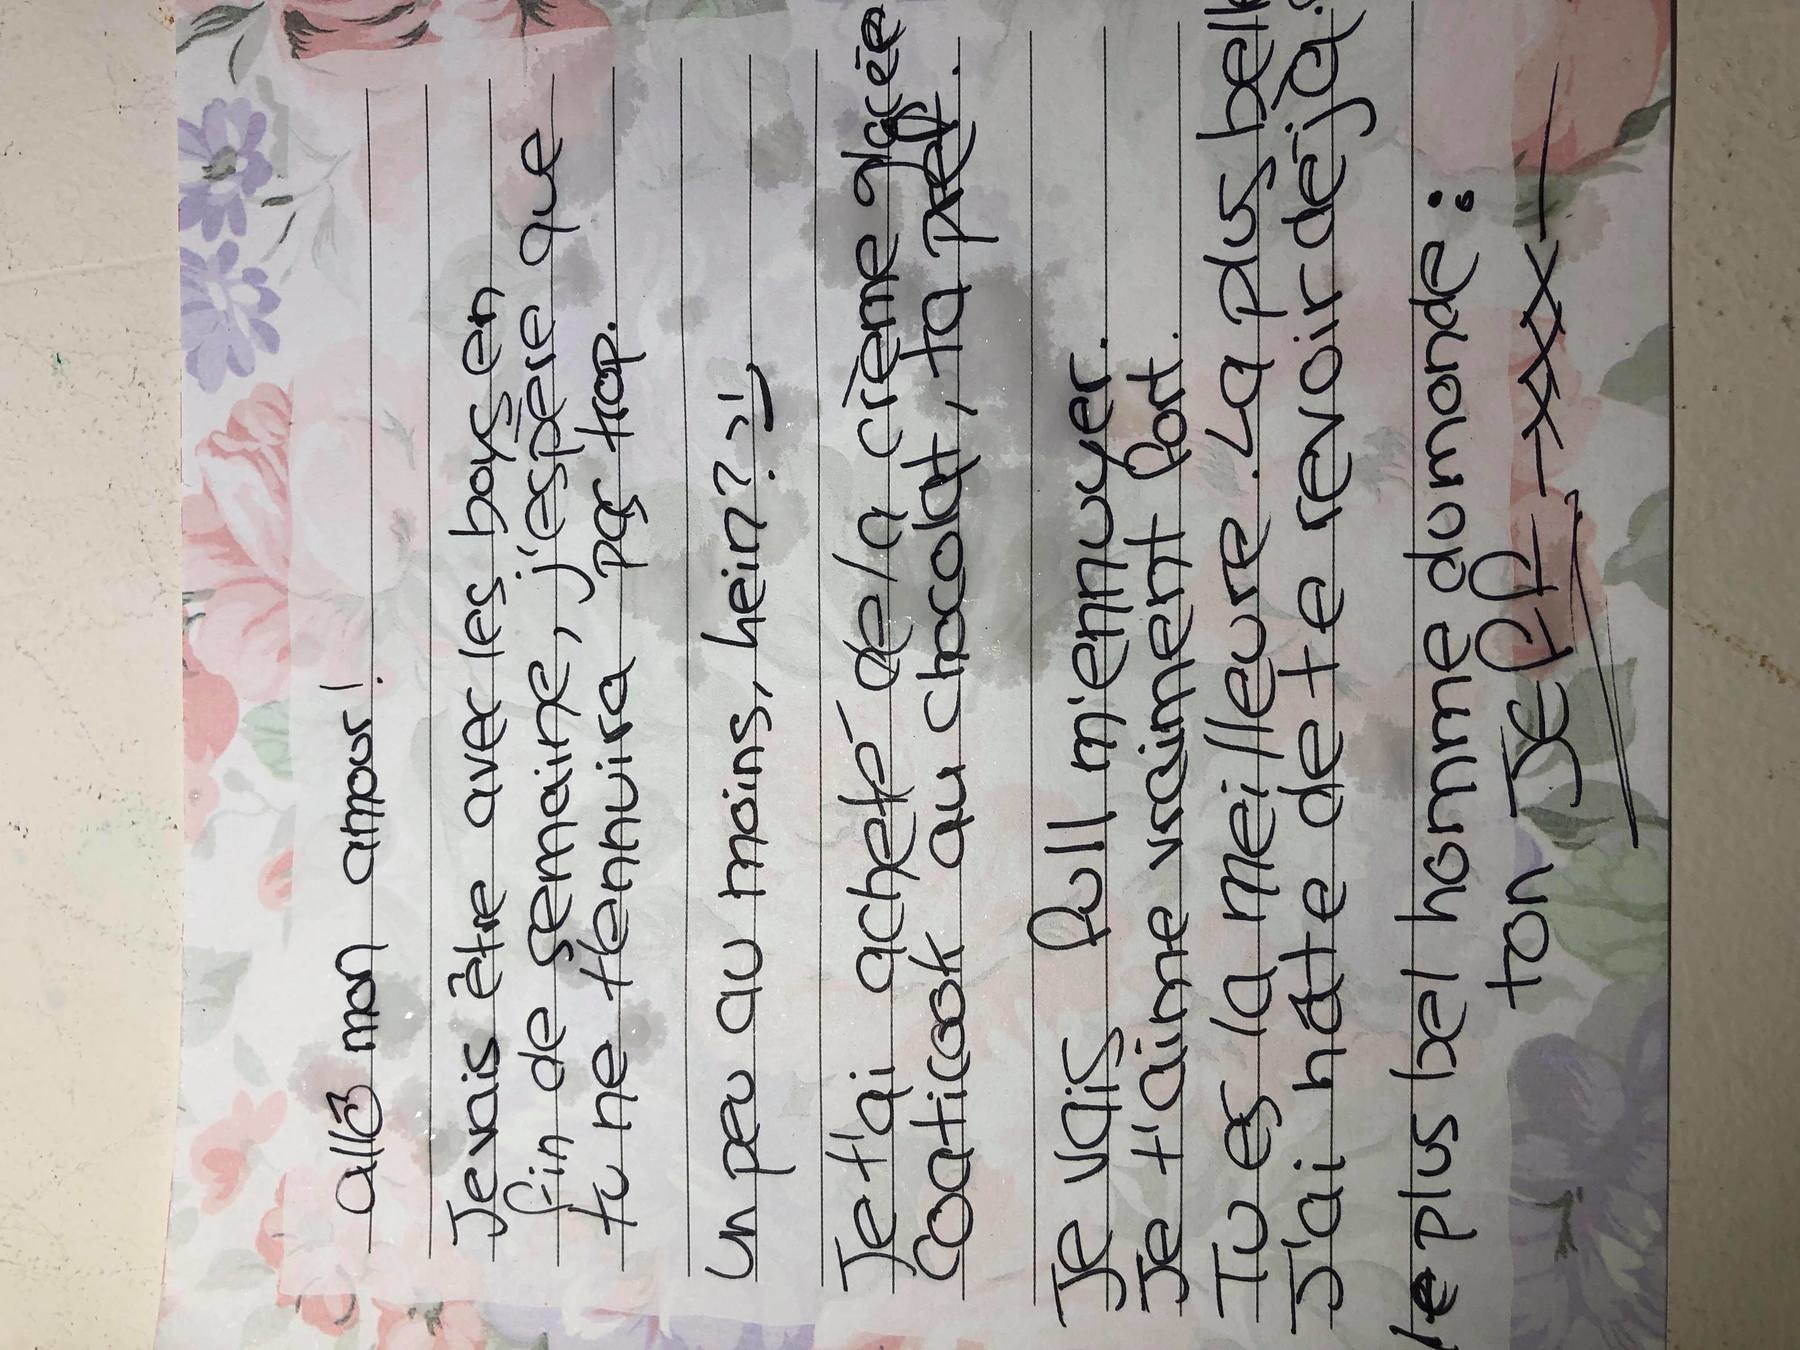 allô mon amour!
Je vais être avec les boys en
fin de semaine, j'espère que
tu ne t'ennuira pas trop.
Un peu au moins, hein?? ;)
Je t'ai acheté de la crème glacée
Coaticook au chocolat, ta pref.
Je vais full m'ennuyer.
Je t'aime vraiment fort.
Tu es la meilleure. La plus belle
J'ai hâte de te revoir déjà.
le plus bel homme du monde:
ton JEFF -xxx-